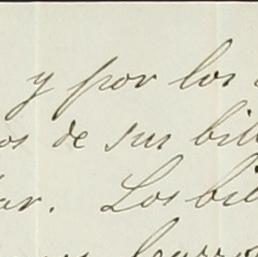 y por los
os de sus bil
ar. Los bil